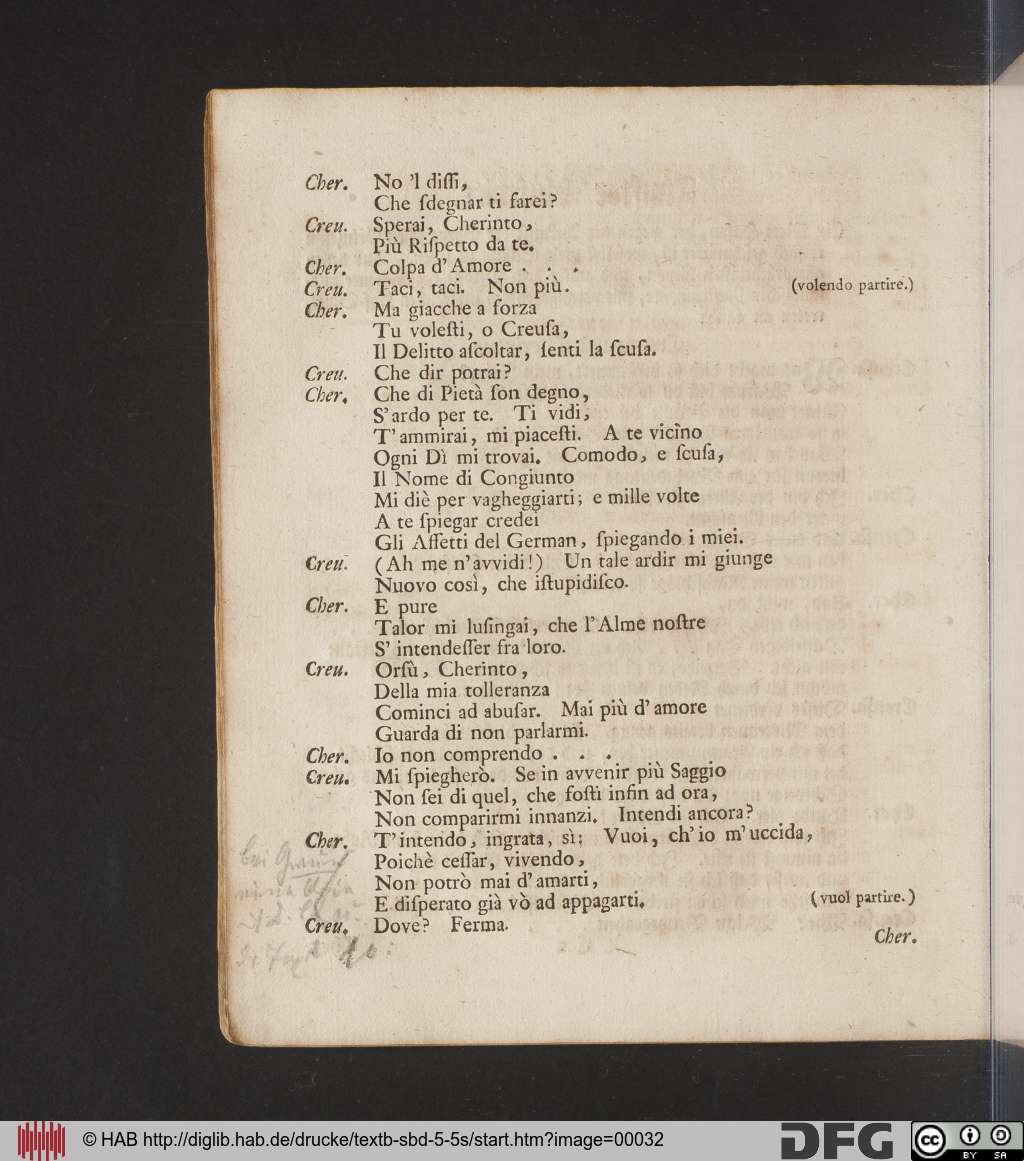 Cher. No 'l diſſi,
Che ſdegnar ti farei?
Creu. Sperai, Cherinto,
Più Riſpetto da te.
Cher. Colpa d' Amore . . .
Creu. Taci, taci. Non più. (volendo partire.)
Cher. Ma giacche a forza
Tu voleſti, o Creuſa,
Il Delitto aſcoltar, ſenti la ſcuſa.
Creu. Che dir potrai?
Cher. Che di Pietà ſon degno,
S' ardo per te. Ti vidi,
T' ammirai, mi piaceſti. A te vicino
Ogni Dì mi trovai. Comodo, e ſcuſa,
Il Nome di Congiunto
Mi diè per vagheggiarti; e mille volte
A te ſpiegar credei
Gli Affetti del German, ſpiegando i miei.
Creu. (Ah me n' avvidi!) Un tale ardir mi giunge
Nuovo così, che iſtupidiſco.
Cher. E pure
Talor mi luſingai, che l' Alme noſtre
S' intendeſſer fra loro.
Creu. Orſù, Cherinto,
Della mia tolleranza
Cominci ad abuſar. Mai più d' amore
Guarda di non parlarmi.
Cher. Io non comprendo . . .
Creu. Mi ſpiegherò. Se in avvenir più Saggio
Non ſei di quel, che foſti infin ad ora,
Non comparirmi innanzi. Intendi ancora?
Cher. T' intendo, ingrata, sì; Vuoi, ch' io m' uccida,
Poichè ceſſar, vivendo,
Non potrò mai d' amarti,
E diſperato già vò ad appagarti. (vuol partire.)
Creu. Dove? Ferma.
Cher.
© HAB http://diglib.hab.de/drucke/textb-sbd-5-5s/start.htm?image=00032
DFG
cc BY SA